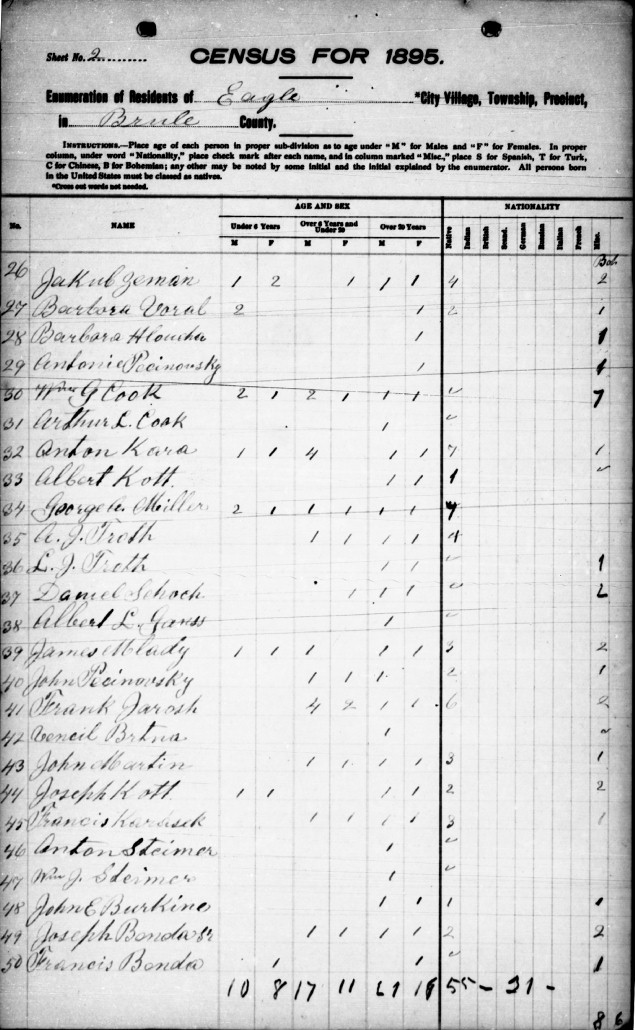 Sheet No. 2
CENSUS FOR 1895.
Enumeration of Residents of Eagle *City Village, Township, Precinct,
in Brule County.
INSTRUCTIONS.—Place age of each person in proper sub-division as to age under "M" for Males and "F" for Females. In proper
column, under word "Nationality," place check mark after each name, and in column marked "Misc.," place S for Spanish, T for Turk,
C for Chinese, B for Bohemian; any other may be noted by some initial and the initial explained by the enumerator. All persons born
in the United States must be classed as natives.
*Cross out words not needed.
AGE AND SEX NATIONALITY
No. NAME Under 6 Years Over 6 Years and Under 20 Over 20 Years Native Indian British Scand. Germans Russian Italian French Misc.
M F M F M F
Boh.
26 Jakub Zeman 1 2 1 1 1 4 2
27 Barbora Voral 2 1 2 1
28 Barbora Hloucha 1 1
29 Antonie Pecinovsky 1 1
30 Wm G Cook 2 1 2 1 1 1 ✓ 7
31 Arthur L. Cook 1 ✓
32 Anton Kara 1 1 4 1 1 7 1
33 Albert Kott. 1 1 1 ✓
34 George A. Miller 2 1 1 1 1 1 7
35 A. J. Troth 1 1 1 1 4
36 L. J. Troth 1 1 ✓ 1
37 Daniel Schoch 1 1 1 ✓ 2
38 Albert L. Gauss 1 ✓
39 James Mlady 1 1 1 1 1 3 2
40 John Pecinovsky 1 1 1 2 1
41 Frank Jarosh 4 2 1 1 6 2
42 Vencil Brtna 1 ✓
43 John Martin 1 1 1 1 3 1
44 Joseph Kott. 1 1 1 1 2 2
45 Francis Karasek 1 1 1 1 3 1
46 Anton Steimer 1 ✓
47 Wm J. Steimer 1 ✓
48 John E Burkine 1 1 1 1
49 Joseph Bonda Sr 1 1 1 1 2 2
50 Francis Bonda 1 1 ✓ 1
10 8 17 11 21 19 55 - 31 -
86